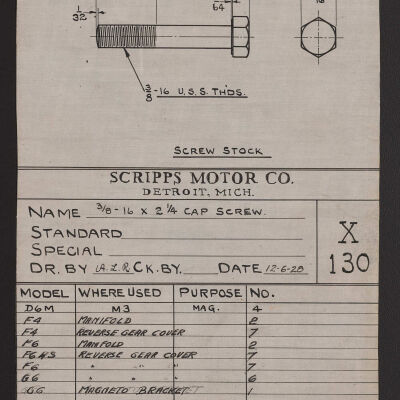 1/32
64
3/8-16 U.S.S. TH'DS.
SCREW STOCK
SCRIPPS MOTOR CO.
DETROIT, MICH.
NAME 3/8-16 x 2 1/4 CAP SCREW.
STANDARD
SPECIAL
DR. BY A.L.R. CK. BY. DATE 12-6-28
X
130
MODEL WHERE USED PURPOSE NO.
D6M M3 MAG. 4
F4 MANIFOLD 2
F4 REVERSE GEAR COVER 7
F6 MANIFOLD 2
F6 H.S REVERSE GEAR COVER 7
F6 " " " 7
G6 " " " 6
G6 MAGNETO BRACKET 1